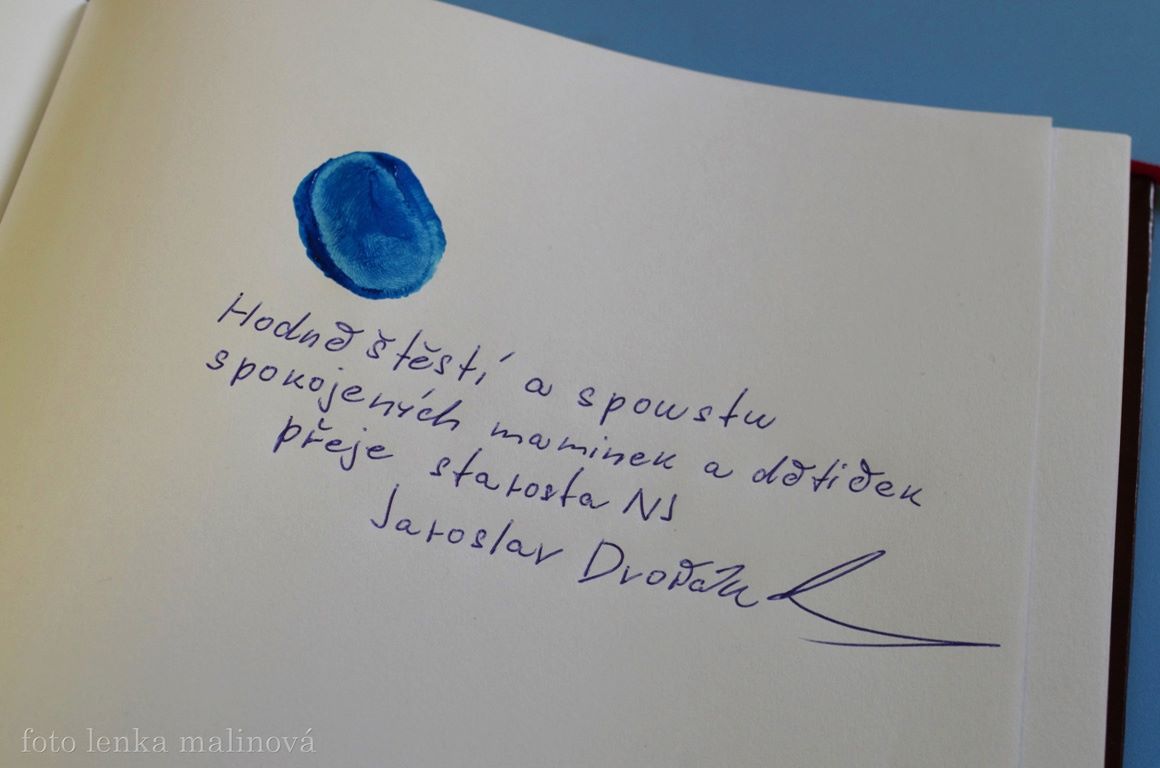 Hodně štěstí a spoustu
spokojených maminek a dětiček
přeje starosta NS
Jaroslav Dvořák
foto lenka malinová